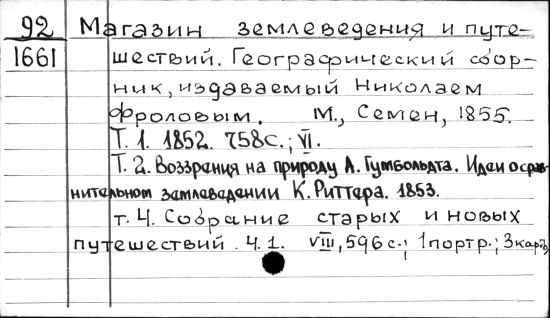 92 Магазин землеведения и путе-
1661 шествий. Географический сбор-
ник, издаваемый Николаем
Фроловым. М., Семен, 1855.
Т. 1. 1852. 758с.; VI.
Т. 2. Воззрения на природу А. Гумбольдта. Идеи о срав-
нительном землеведении К. Риттера. 1853.
т. 4. Собрание старых и новых
путешествий. Ч. 1. VIII, 596 с.; 1 портр.; 3 карт.